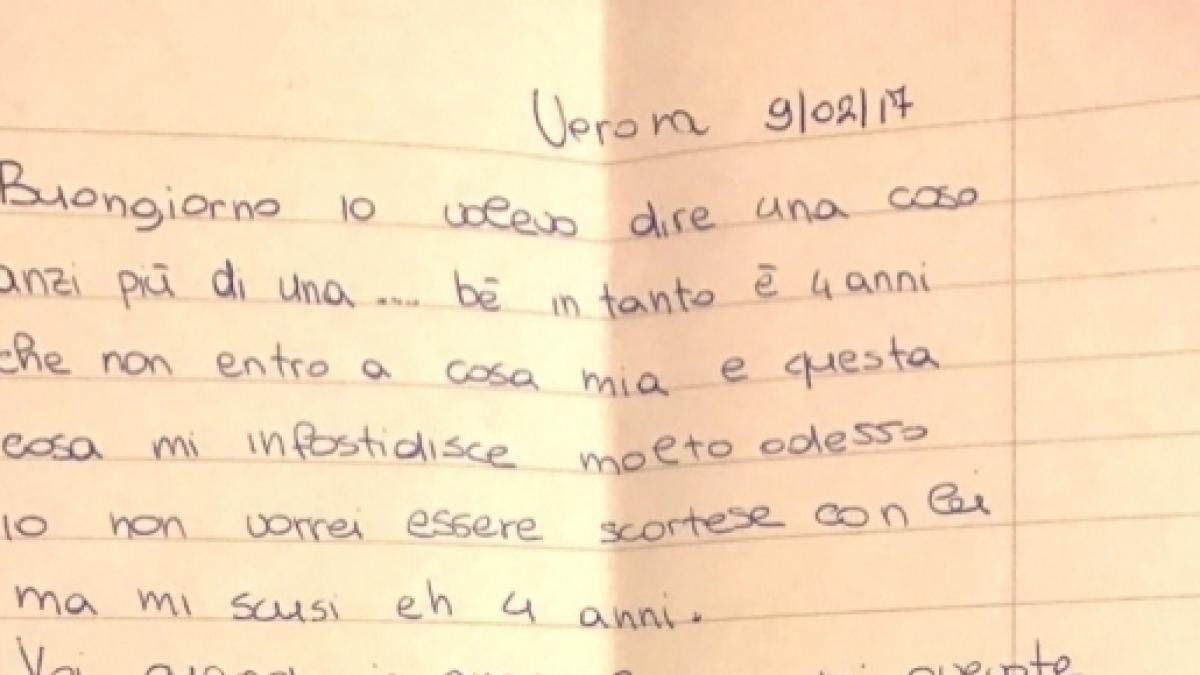 Verona 9/02/17
Buongiorno io volevo dire una cosa
anzi più di una .... bē in tanto ē 4 anni
che non entro a cosa mia e questa
cosa mi infastidisce molto adesso
io non vorrei essere scortese con lei
ma mi scusi eh 4 anni.
Voi